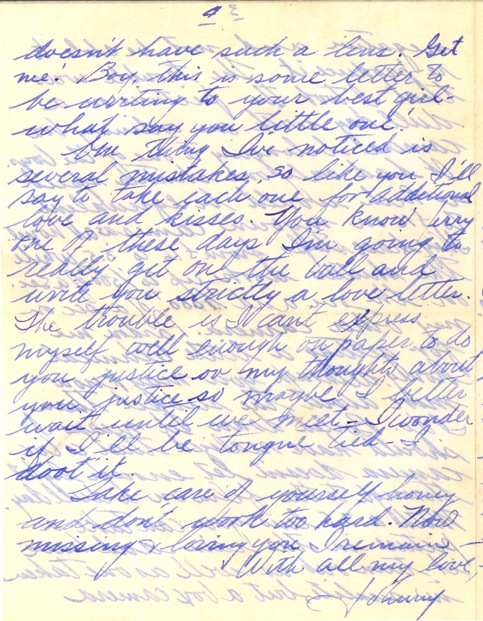 4
doesn't have such a line. Get
me. Boy, this is some letter to
be writing to your best girl-
what say you little one
One thing I've noticed is
several mistakes, so like you I'll
say to take each one for additional
love and kisses. You know very
one of these days I'm going to
really get on the ball and
write you strictly a love letter.
The trouble is I can't express
myself well enough on paper to do
you justice or my thoughts about
you justice so maybe I better
wait until we meet - I wonder
if I'll be tongue tied - I
doot it.
Take care of yourself honey
and don't work too hard. Now
missing & loving you I remain -
With all my love,
Johnny